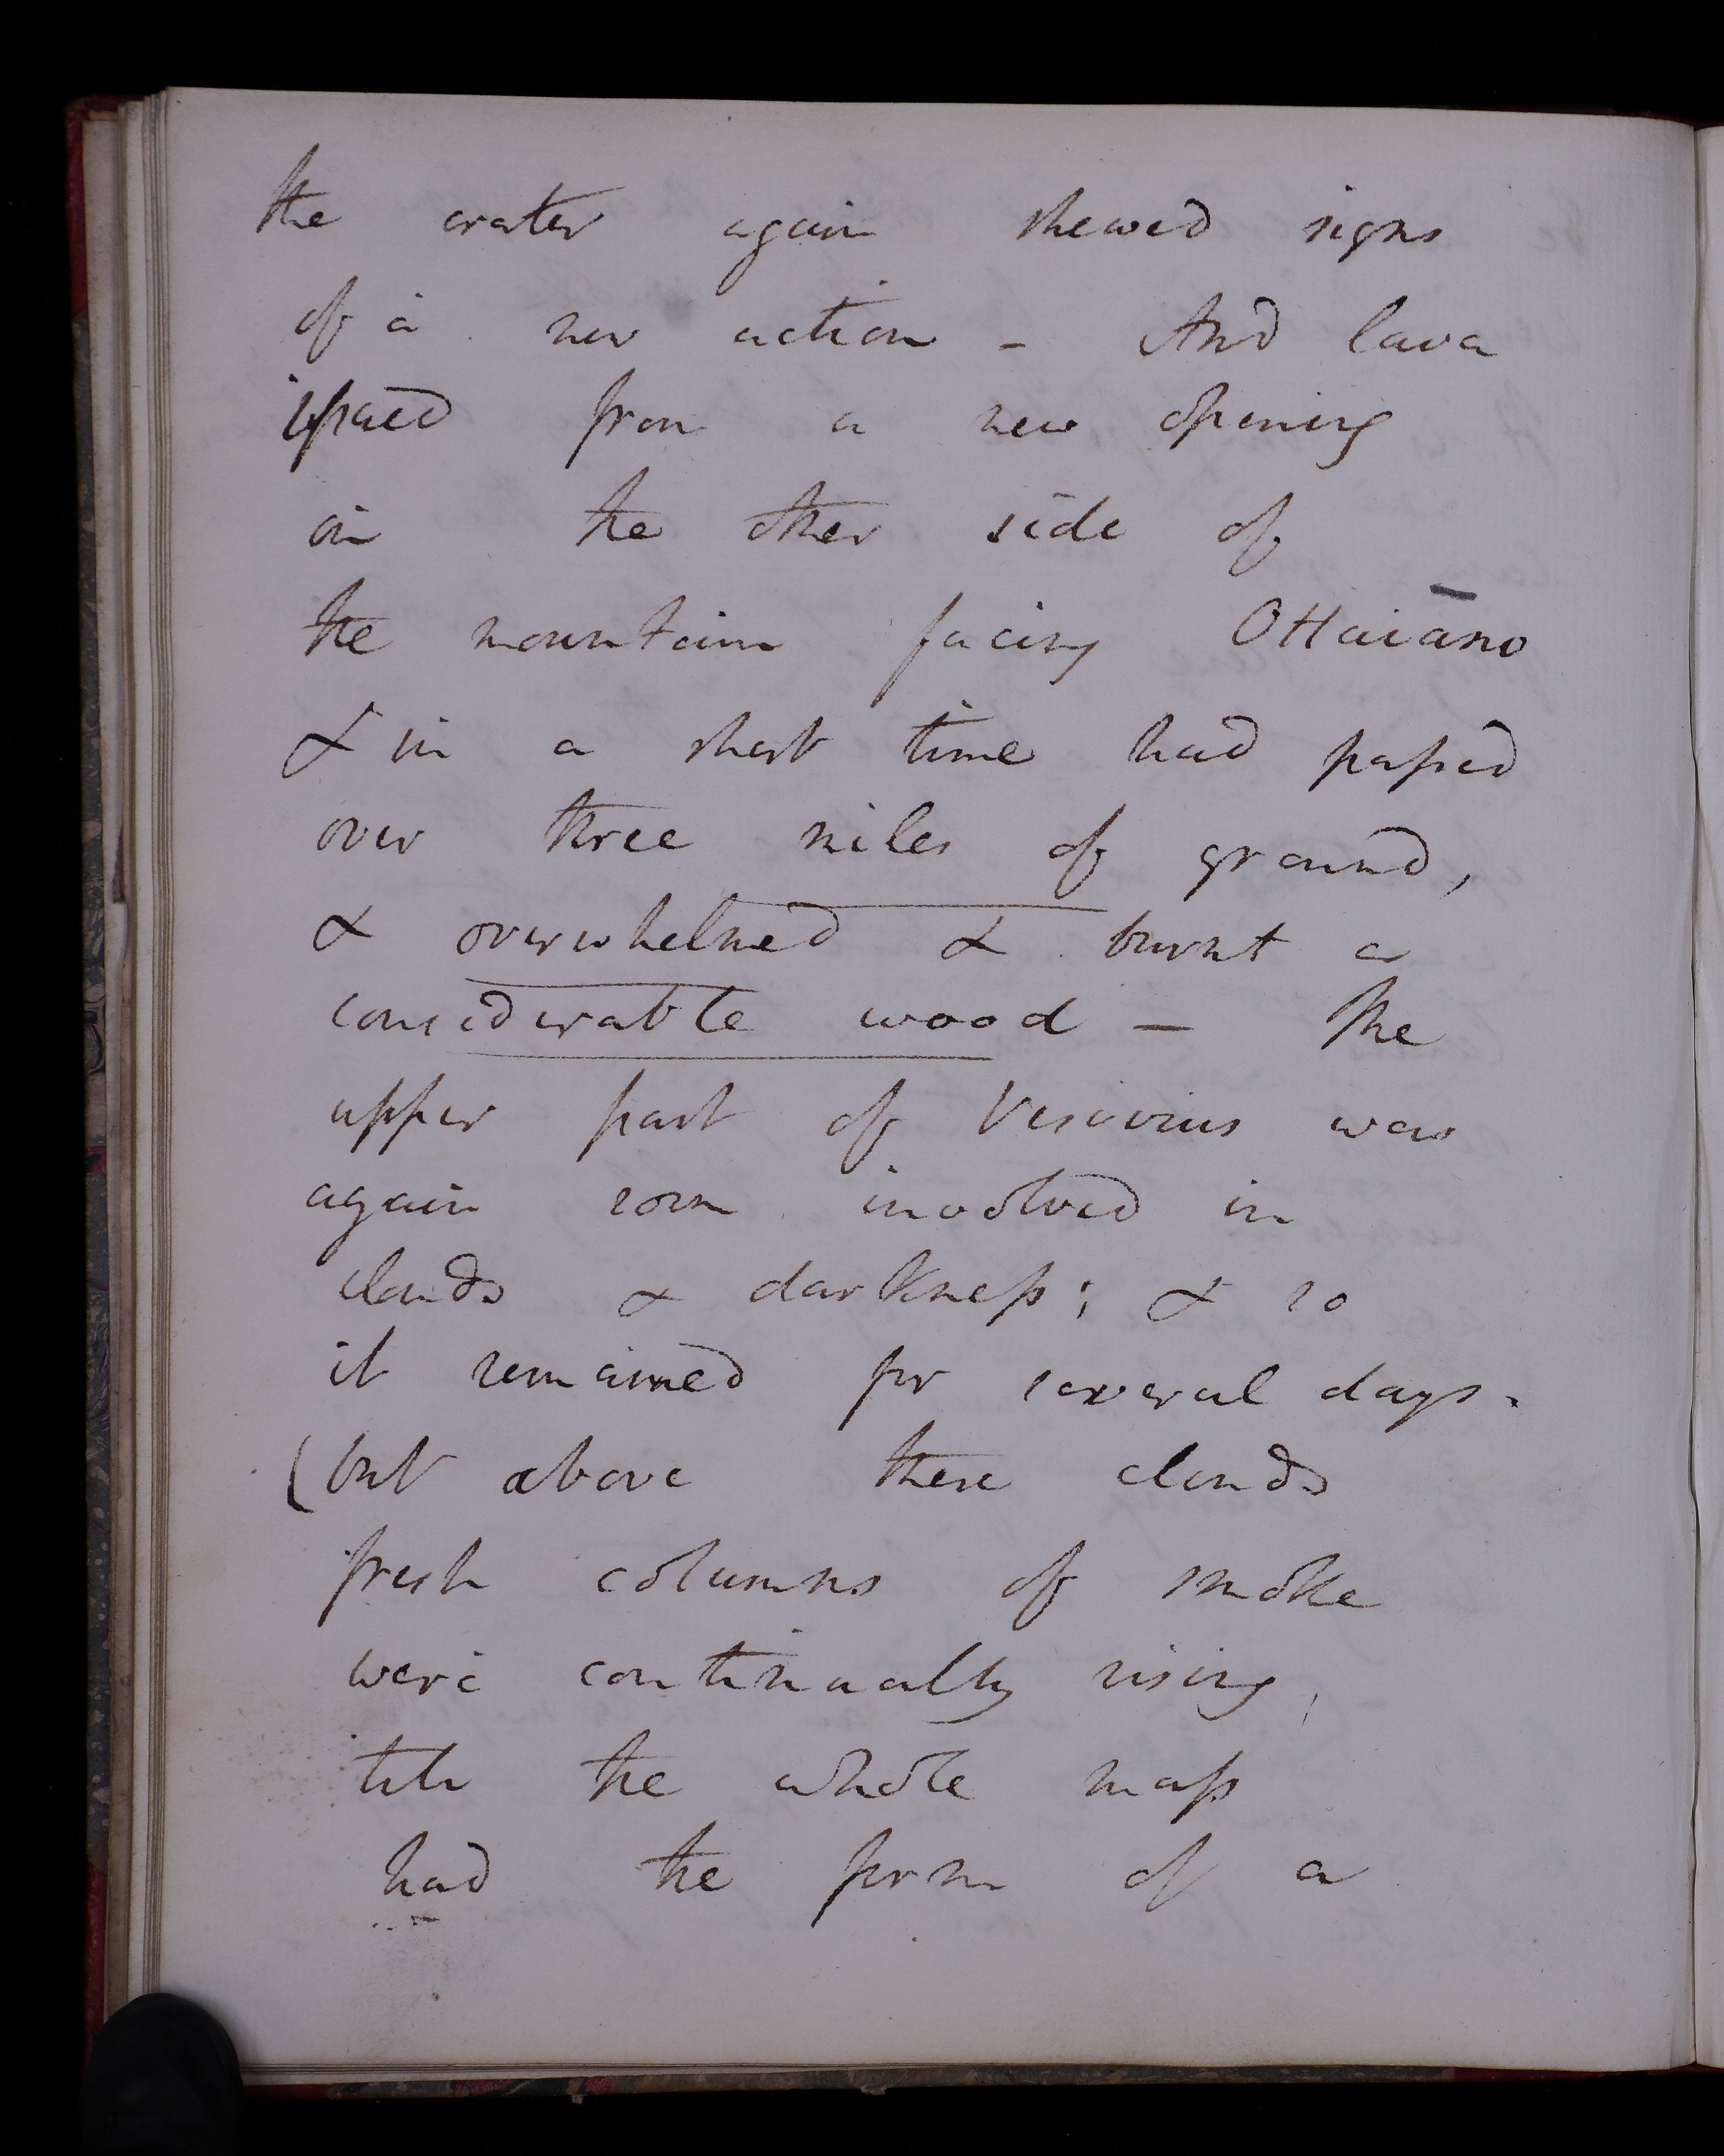 the crater again shewed signs
of a new action - And lava
issued from a new opening
on the other side of
the mountain facing Ottaiano
& in a short time had passed
over three miles of ground,
& overwhelmed & burnt a
considerable wood - The
upper part of Vesuvius was
again soon involved in
clouds & darkness; & so
it remained for several days.
(but above these clouds
fresh columns of smoke
were continually rising,
till the whole mass
had the form of a